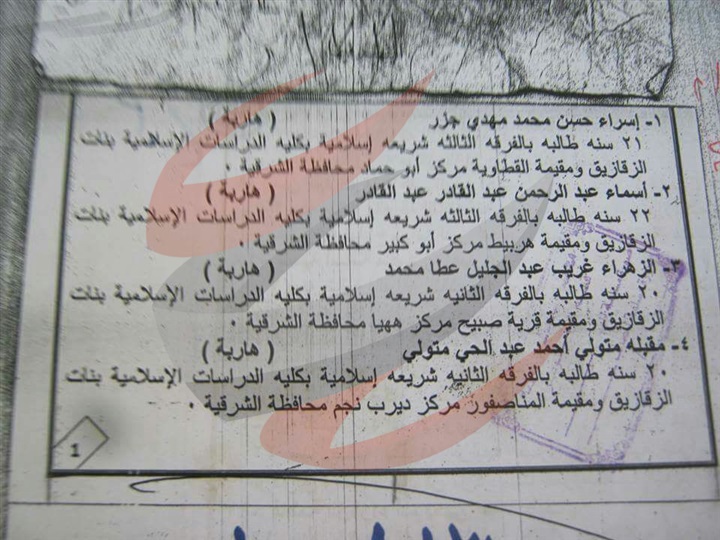 ١- إسراء حسن محمد مهدي جزر ( هاربة )
٢١ سنه طالبه بالفرقه الثالثه شريعه إسلامية بكليه الدراسات الإسلامية بنات
الزقازيق ومقيمة القطاوية مركز أبو حماد محافظة الشرقية ٠
٢- أسماء عبد الرحمن عبد القادر عبد القادر ( هاربة )
٢٢ سنه طالبه بالفرقه الثالثه شريعه إسلامية بكليه الدراسات الإسلامية بنات
الزقازيق ومقيمة هربيط مركز أبو كبير محافظة الشرقية ٠
٣- الزهراء غريب عبد الجليل عطا محمد ( هاربة )
٢٠ سنه طالبه بالفرقه الثانيه شريعه إسلامية بكليه الدراسات الإسلامية بنات
الزقازيق ومقيمة قرية صبيح مركز ههيا محافظة الشرقية ٠
٤- مقبله متولي أحمد عبد الحي متولي ( هاربة )
٢٠ سنه طالبه بالفرقه الثانيه شريعه إسلامية بكليه الدراسات الإسلامية بنات
الزقازيق ومقيمة المناصفور مركز ديرب نجم محافظة الشرقية ٠
1